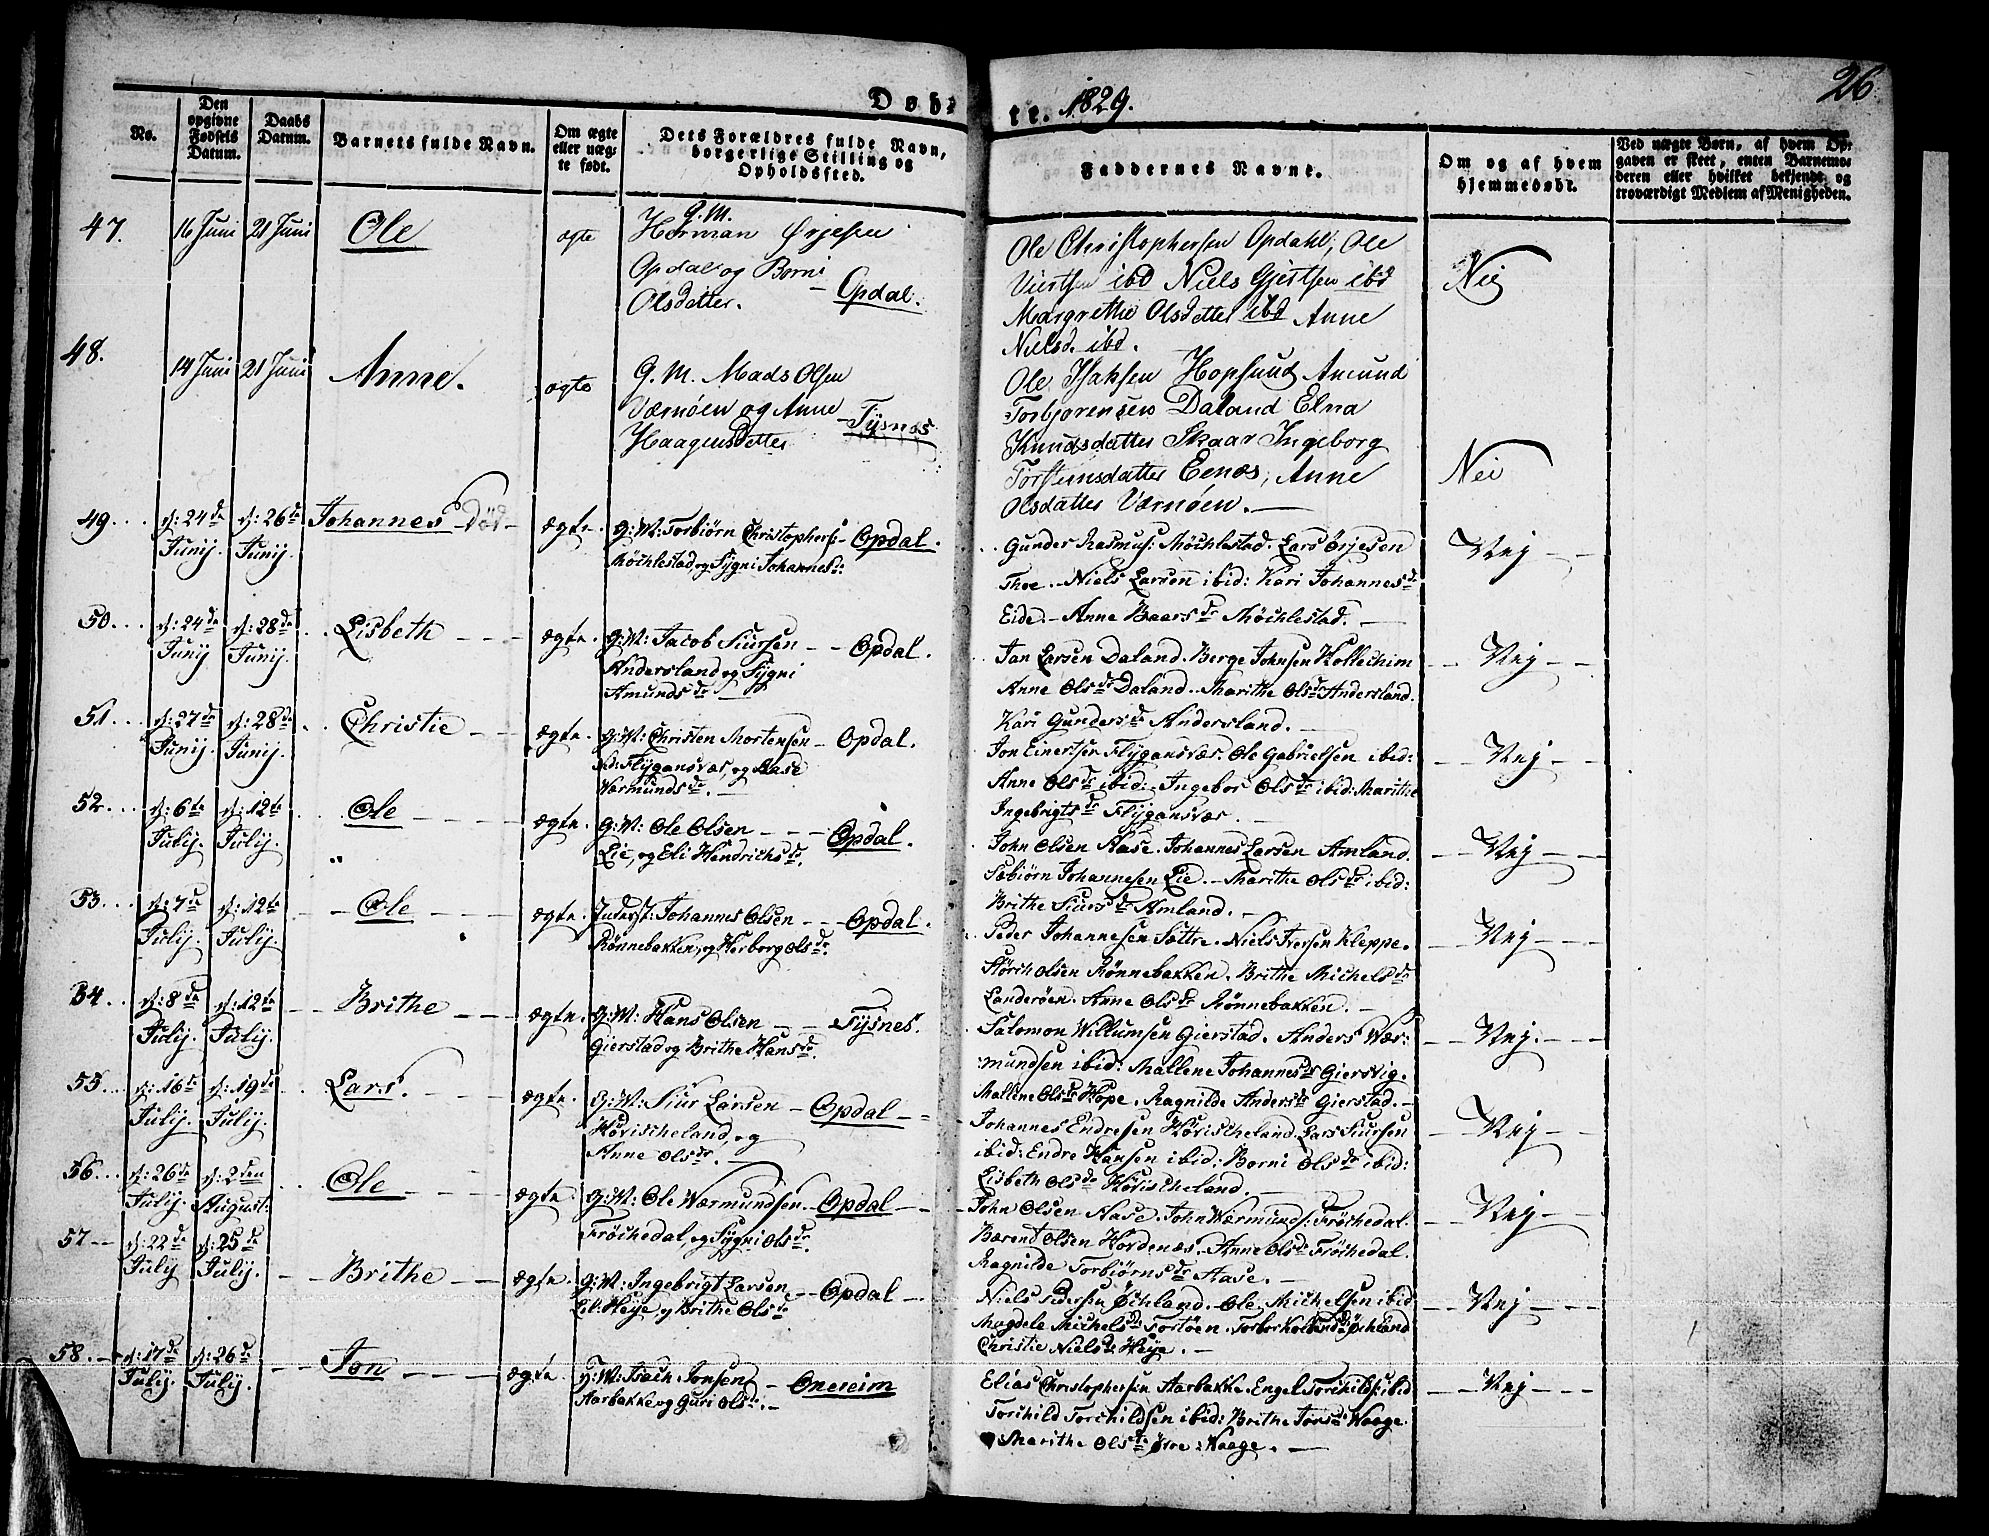 26
Døb- te. 1829.
No.
Den opgivne Fødsels Datum.
Daabs Datum.
Barnets fulde Navn.
Om ægte eller uægte født.
Dets Forældres fulde Navn, borgerlige Stilling og Opholdssted.
Faddernes Navne.
Om og af hvem hjemmedøbt.
Ved uægte Børn, af hvem Op-
gaven er skeet, enten Barnemo-
deren eller hvilket bekjendt og
troværdigt Medlem af Menigheden.
47. 16 Juni 21 Juni Ole ægte
G. M.
Herman Ørjesen
Opdal og Børni
Olsdatter. - Opdal.
Ole Christophersen Opdahl, Ole
ibd Niels Gjertsen ibd
Margrethe Olsdatter ibd Anne
Nielsd. ibd.
Nei
48. 14 Juni 21 Juni Anne. ægte
G. M. Mads Olsen
Værnøen og Anne - Tysnes
Haagensdatter
Ole Isaksen Hopsund Amund
Torbjørensen Daland Elna
Knudsdatter Skaar Ingeborg
Torsteinsdatter Eenæs, Anne
Olsdatter Værnøen.
Nei
49. d: 24de Junij. d: 26de Junij. Johannes Død ægte.
G: M: Torbiørn Christophers: - Opdal.
Møchlestad og Sygni Johannesdr:
Gunder Rasmus: Møchlestad. Lars Ørjesen
Thoe. Niels Larsen ibid: Kari Johannesdr
Eide. Anne Baarsdr Møchlestad.
Nej
50. d: 24de Junij d: 28de Junij. Lisbeth ægte.
G: M: Jacob Siursen - Opdal.
Andersland og Sygni
Amundsdr
Jan Larsen Daland. Berge Johnsen Kolleehim
Anne Olsdr Daland. Marithe Olsdr Andersland.
Kari Gundersdr Andersland.
Nej
51. d: 27de Junij. d: 28de Junij. Christie ægte.
G: M: Christen Mortensen - Opdal.
Flygansvær, og Aase
Varmundsdr.
Jon Einertsen Flygansvær. Ole Gabrielsen ibid:
Anne Olsdr ibid: Ingebor Olsdr ibid: Marithe
Ingebrigtsdr Flygansvær.
Nej
52. d: 6te Julij. d: 12te Julij. Ole ægte.
G: M: Ole Olsen - Opdal.
Lie, og Eli Hendrichsdr.
John Olsen Aase. Johannes Larsen Amland.
Sæbiørn Johannesen Lie. Marithe Olsdr ibid:
Brithe Siursdr Amland.
Nej
53. d: 7de Julij. d: 12te Julij. Ole ægte.
Inderst: Johannes Olsen - Opdal.
Rønnebakken, og Herborg Olsdr.
Peder Johannesen Sættre. Niels Iversen Kleppe.
Størch Olsen Rønnebakken. Brithe Michelsdr
Landerøen. Anne Olsdr Rønnebakken.
Nej
54. d: 8de Julij. d: 12te Julij. Brithe ægte.
G: M: Hans Olsen - Tysnes.
Gierstad og Brithe Hansdr.
Salomon Willumsen Gierstad. Anders Vær:
mundsen ibid: Mallene Johannesdr Giersvig.
Mallene Olsdr Hope. Ragnilde Andersdr Gierstad.
Nej
55. d: 16de Julij. d: 19de Julij. Lars. ægte.
G: M: Siur Larsen - Opdal
Høvischeland, og
Anne Olsdr.
Johannes Endresen Høvischeland. Lars Siursen
ibid: Endre Hansen ibid: Børni Olsdr ibid:
Lisbeth Olsdr Høvischeland.
Nej
56. d: 26de Julij. d: 2den August: Ole ægte.
G: M: Ole Wærmundsen - Opdal
Frøchedal, og Sygni Olsdr.
John Olsen Aase. John Wærmunds: Frøchedal.
Bærent Olsen Hordenæs. Anne Olsdr Frøchedal.
Ragnilde Torbiørnsdr Aase.
Nej
57. d: 22de Julij d: 25de Julij. Brithe ægte.
G: M: Ingebrigt Larsen - Opdal
Lil: Høye og Brithe Olsdr
Niels Pedersen Øchland. Ole Michelsen ibid
Magdele Michelsdr Tortøen. Øchland
Christie Nielsdr Høye.
Nej
58. d: 17de Julij. d: 26de Julij. Jon ægte.
G: M: Isach Jonsen - Onereim
Aarbakke og Guri Olsdr.
Elias Christophersen Aarbakke. Engel Torchilds: ibid
Torchild Torchildsen ibid: Brithe Jonsdr Waage.
Marithe Olsdr Øvre Waage.
Nej